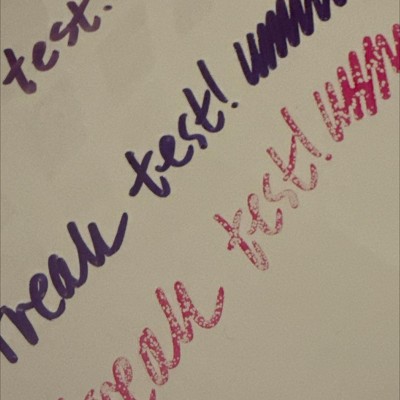 test.
reak test!
reak test!